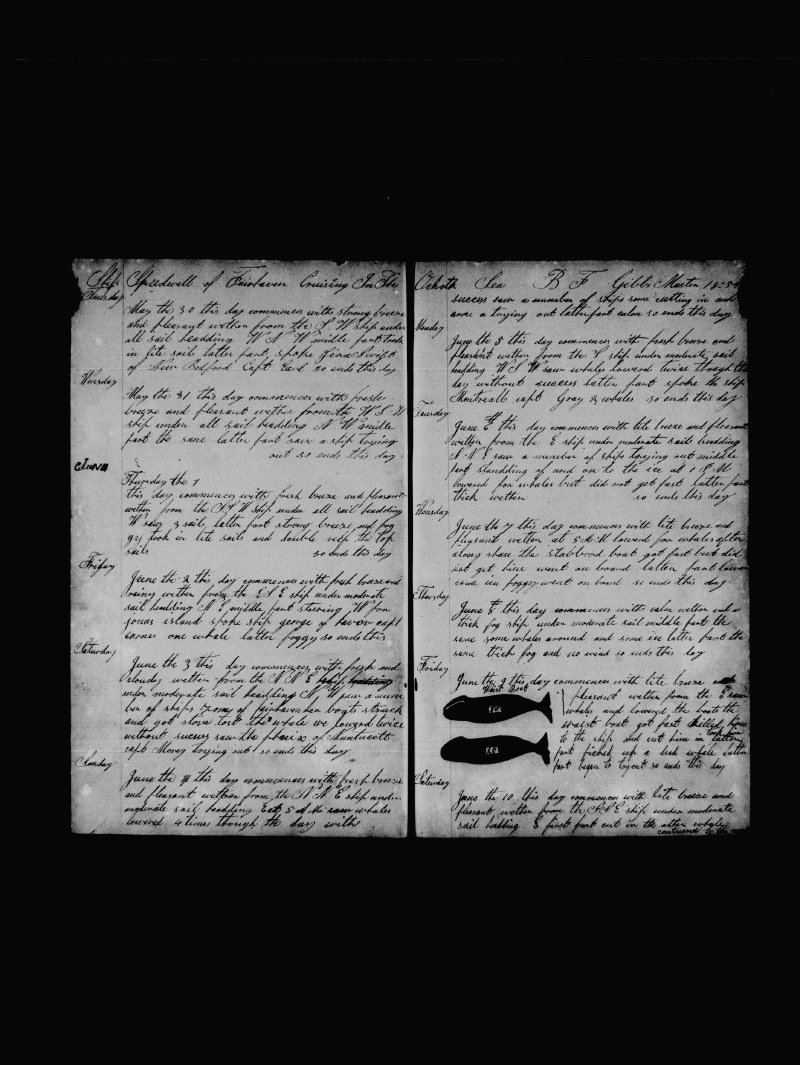 Ship Speedwell of Fairhaven Cruising In The
Tuesday
May the 30 this day commences with strong breeze
and pleasant wether from the S W ship under
all sail headding W N W middle part took
in lite sails latter part spoke
of New Bedford Capt Earl so ends this day
Wensday
May the 31 this day commences with fresh
breeze and pleasant wether from the W S W
ship under all sail headding N W middle
part the same latter part saw a ship trying
out so ends this day
June
Thursday the 1
this day commences with fresh breeze and pleasant
wether from the S S W ship under all sail headding
W saw 3 sails latter part strong breeze and fog
gy took in lite sails and double reep the top
sails so ends this day
Friday
June the 2 this day commences with fresh breese and
wether from the E S E ship under moderate
sail headding N E middle part steering W for
jonas island spoke ship george of haven capt
one whale latter foggy so ends this
Saturday
June the 3 this day commences with fresh and
cloudy wether from the N N E ship headding
under moderate sail headding N W saw a num
ber of ships of fairhaven her boats struck
and got stove lost the whale we lowerd twice
without sucses saw the phenix of Nantucett
capt Morey trying out so ends this day
Sunday
June the 4 this day commences with fresh breeze
and pleasant wether from the N N E ship under
moderate sail headding East 5 A M saw whales
lowerd 4 times through the day with
Ochotk Sea B F Gibbs Master 1854
success saw a number of ships some cutting in and
some a trying out latter part calm so ends this day
Monday
June the 5 this day commences with fresh breeze and
pleasant wether from the S ship under moderate sail
headding W S W saw whales lowerd twice though the
day without success latter part spoke the ship
Montreall capt Gray 2 whales so ends this day
Tuesday
June 6th this day commences with lite breeze and pleasant
wether from the E ship under moderate sail headding
N N E saw a number of ships trying out middle
part standding of and on to the ice at 1 P M
lowerd for whales but did not get fast latter part
thick wether so ends this day
Wensday
June the 7 this day commences with lite breeze and
pleasant wether at 5 A M lowerd for whales after
along chase the stabbord boat got fast but did
not get hire went on board latter part lower
come in foggy went on bord so ends this day
Thursday
June 8th this day commences with calm wether and a
thick fog ship under moderate sail middle part the
same some whales around and some ice latter part the
same thick fog and no wind so ends this day
Friday
June the 9 this day commences with lite breeze and
Waist Boat
pleasant wether from the E saw
whales and lowerd the boats the
waist boat got fast killed him
to the ship and cut him in latter
part picked up a ded whale latter
part began to try out so ends this day
Saturday
June the 10 this day commences with lite breeze and
pleasant wether from the S S E ship under moderate
sail headding E first part cut in the other whale
continued to the